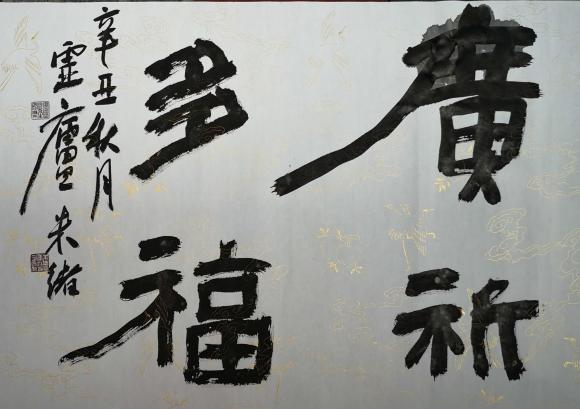 廣祈
多福
辛丑秋月
靈廬朱緒